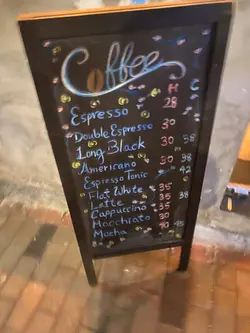 Coffee
H
Espresso 28
Double Espresso 30
Long Black 30 38
Americano 30 38
Espresso Tonic 42
Flat White 35
Latte 35 38
Cappuccino 35 38
Macchiato 30
Mocha 40 45